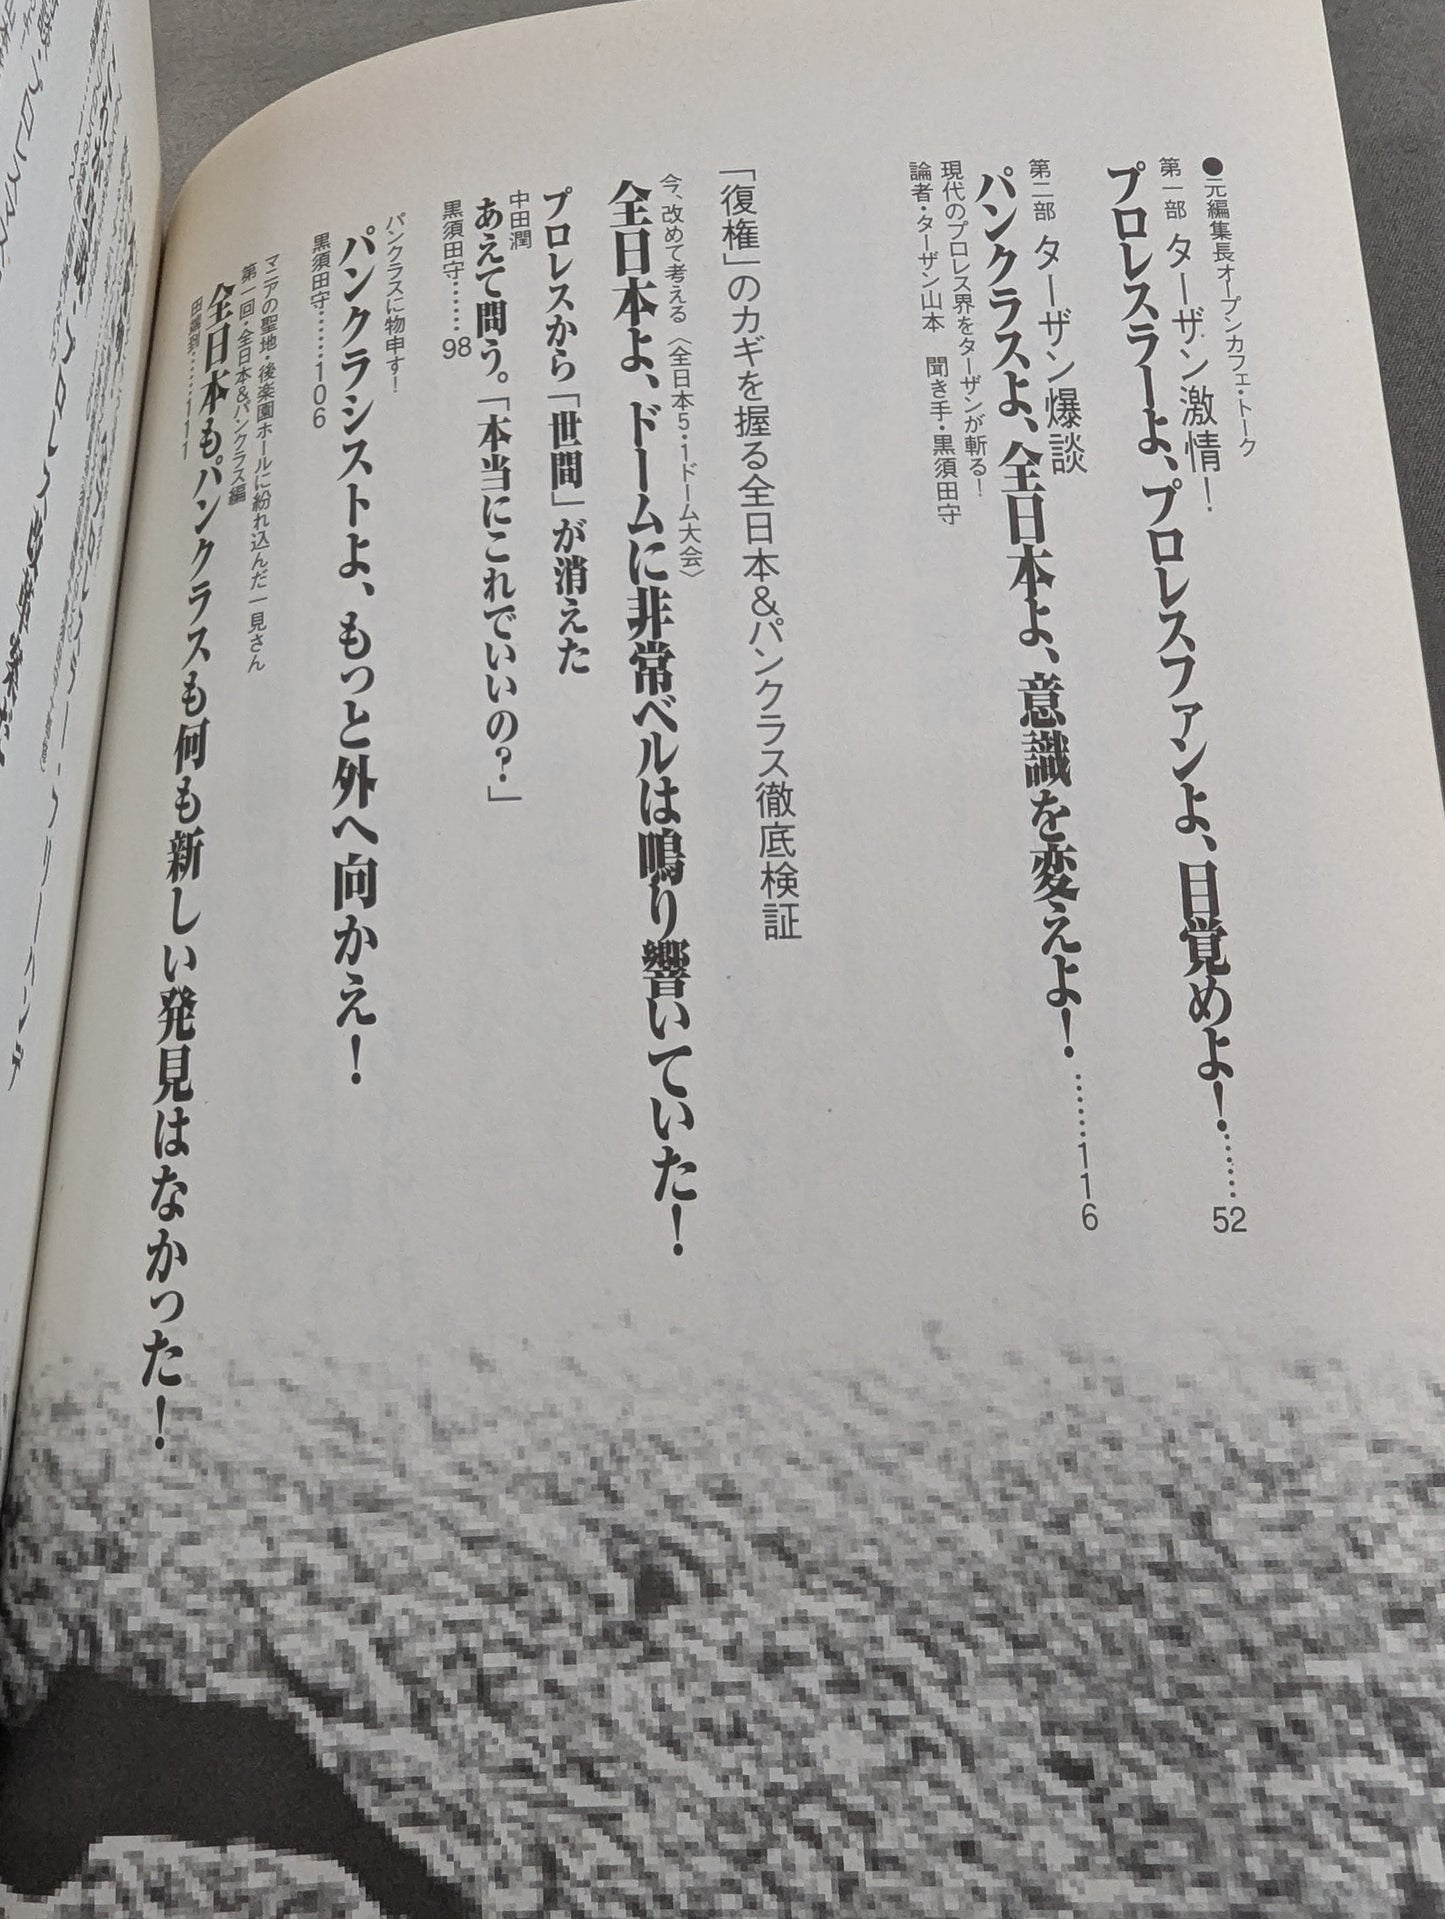 ●元編集長オープンカフェ・トーク
第一部 ターザン激情！
プロレスラーよ、プロレスファンよ、目覚めよ！……52
第二部 ターザン爆談
パンクラスよ、全日本よ、意識を変えよ！……116
現代のプロレス界をターザンが斬る！
論者・ターザン山本 聞き手・黒須田守
「復権」のカギを握る全日本&パンクラス徹底検証
今、改めて考える〈全日本5・1ドーム大会〉
全日本よ、ドームに非常ベルは鳴り響いていた！
プロレスから「世間」が消えた
中田潤
あえて問う。「本当にこれでいいの？」
黒須田守……98
パンクラスに物申す！
パンクラシストよ、もっと外へ向かえ！
黒須田守……106
マニアの聖地・後楽園ホールに紛れ込んだ一見さん
第一回・全日本&パンクラス編
全日本もパンクラスも何も新しい発見はなかった！
田端到……111